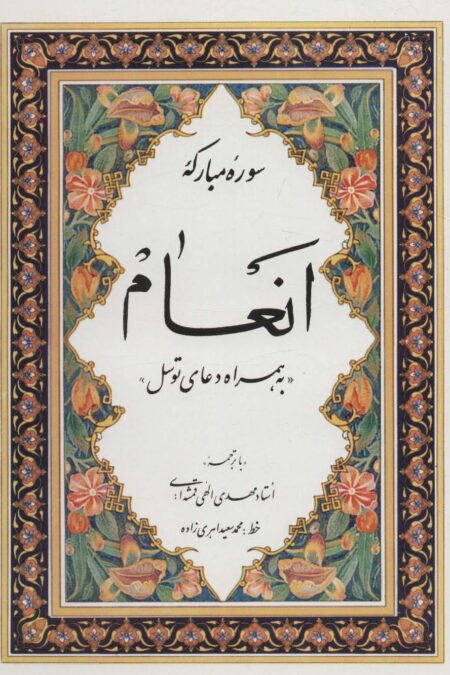 سورهٔ مبارکهٔ
انعام
«به همراه دعای توسل»
«با ترجمهٔ»
استاد مهدی الهی قمشه‌ای
خط: محمد سعید اهری زاده